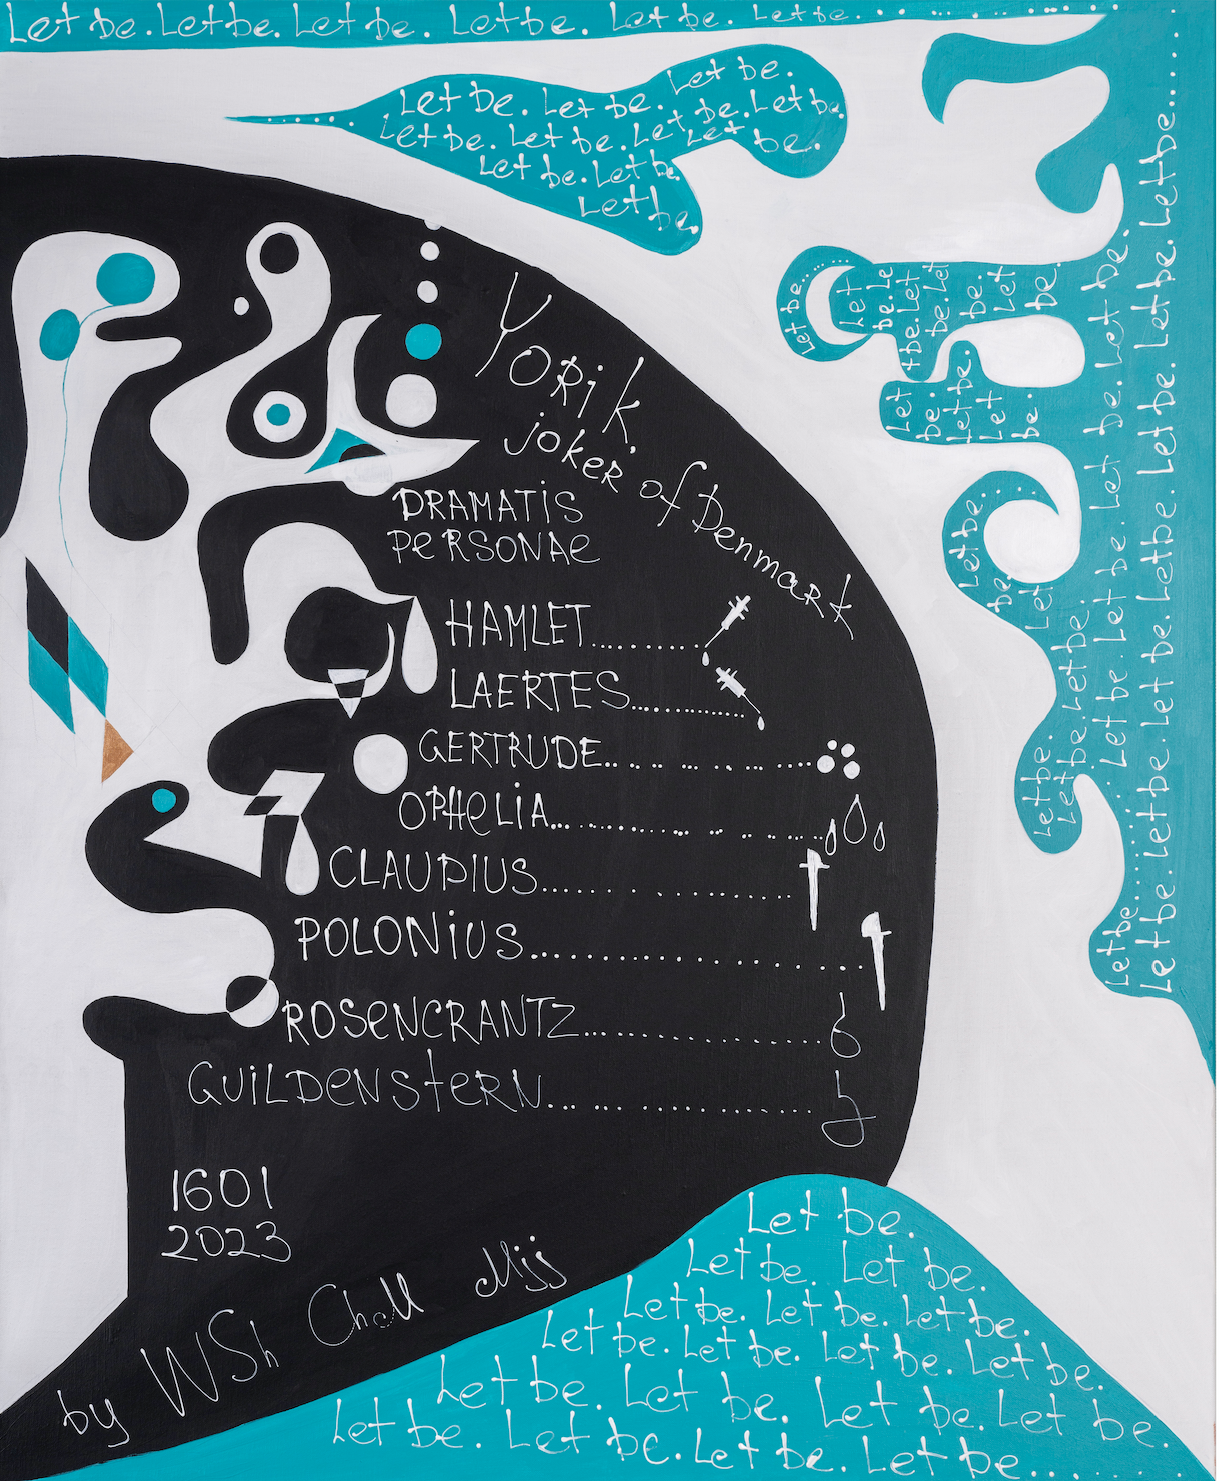 Let be. Let be. Let be. Let be. Let be. Let be.
Let be.
Let be. Let be. be. Let be.
Let be. Let be. Let be. Let be.
Let be. Let be.
Let be.
Let be...
Let be. Let
be. Let be. Let
be. Let be.
Let be.
Let be. Let be. Let be.
Let be.
Let be. Let
Let be.
Let be. Let be.
Let be. Let be. Let be. Let be. Let be.
Let be...
Let be. Let be. Let be. Let be. Let be. Let be. Let be. Let be.....
Yorik,
joker of Denmark
DRAMATiS
PeRSONAe
HAMLET..........
LAERTES..........
GERTRUDE..........
OPHeLiA..........
CLAUDIUS..........
POLONiUS..........
ROSeNCRANTZ..........
GUiLDeNSteRN..........
1601
2023
by WSh Choll Mjj
Let be.
Let be. Let be.
Let be. Let be. Let be.
Let be. Let be. Let be. Let be.
Let be. Let be. Let be. Let be.
Let be. Let be. Let be. Let be.......